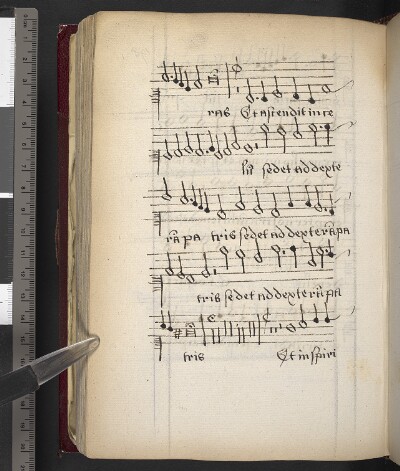 ras Et ascendit in ce
lū sedet ad dexte
rā pa tris sedet ad dexterā pa
tris sedet ad dexterā pa
tris Et in spiri